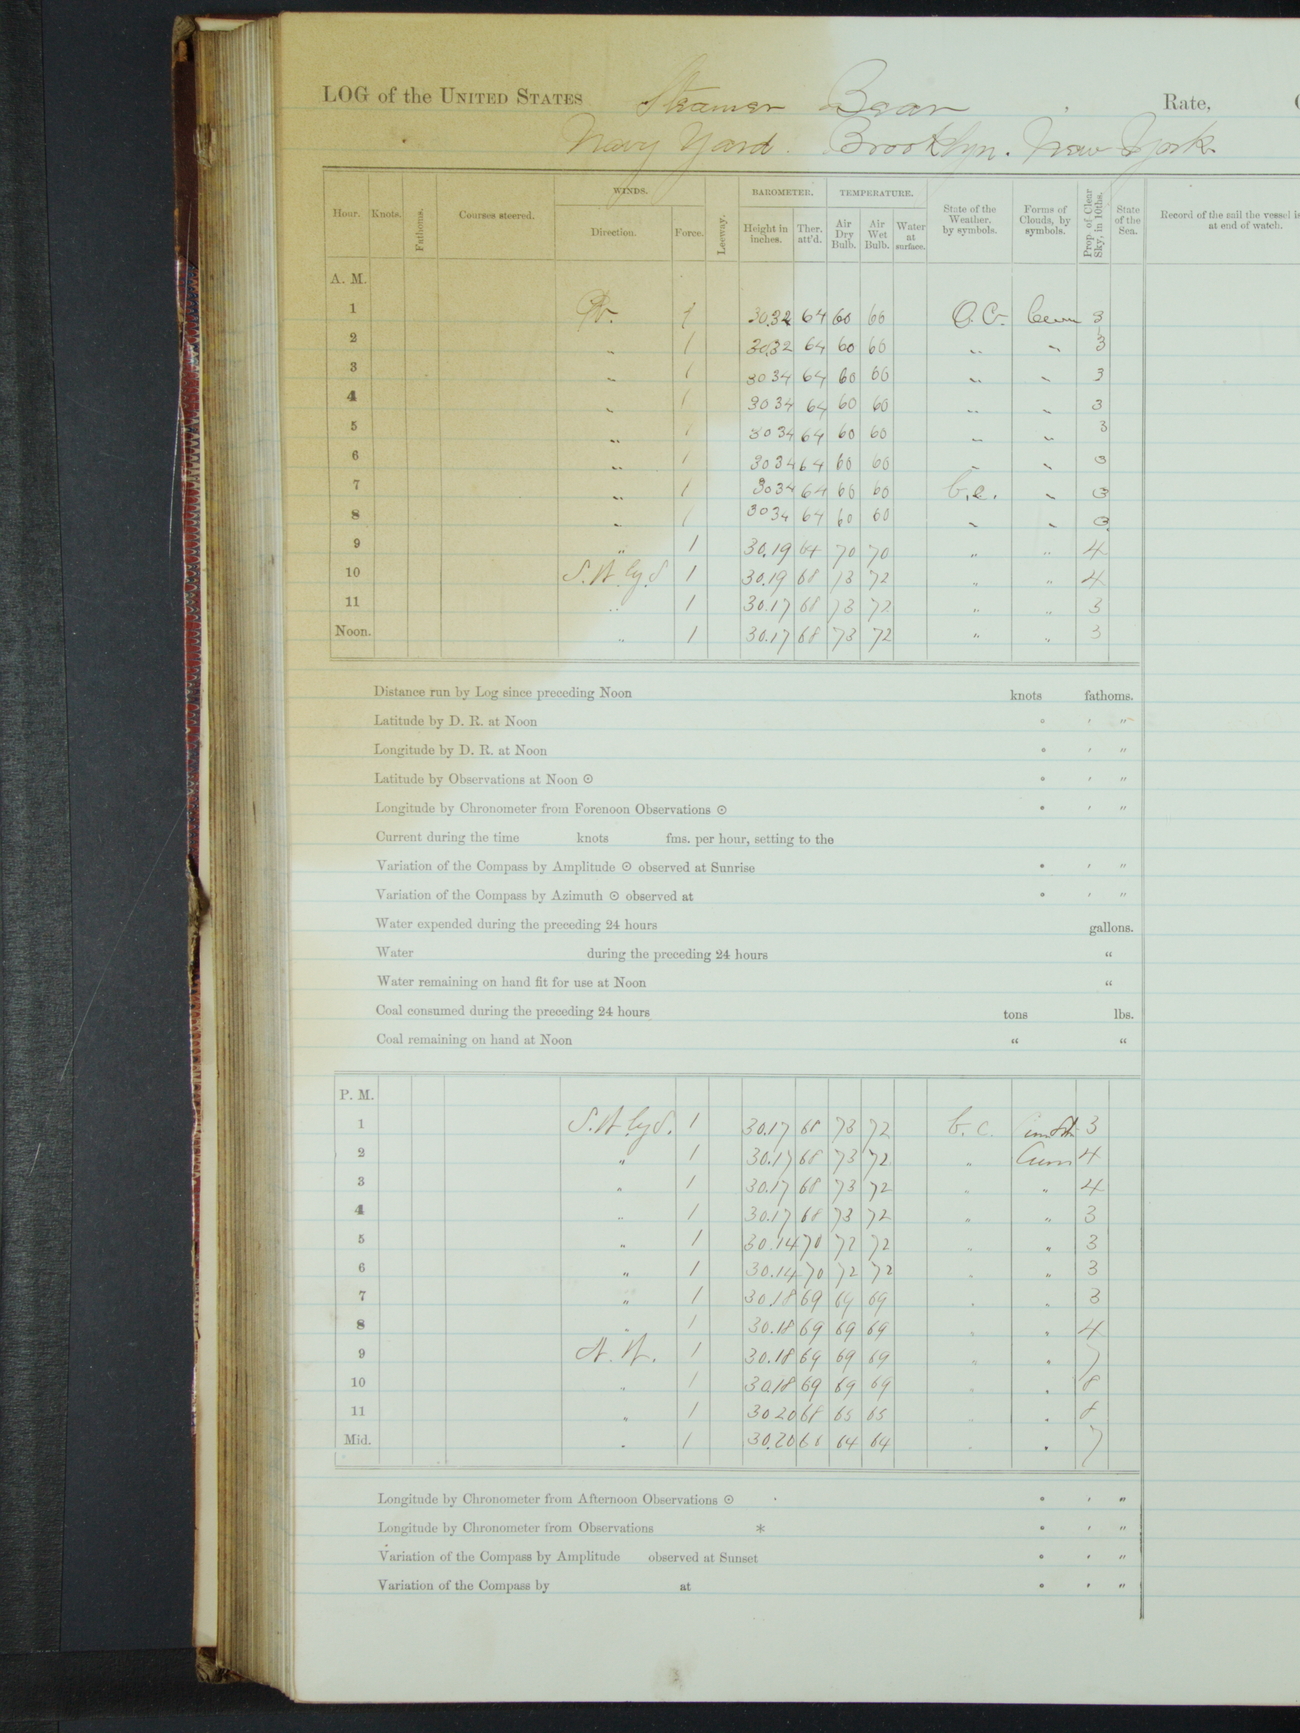 LOG of the UNITED STATES Steamer Bear , Rate,
Navy Yard. Brooklyn. New York.
Hour. Knots. Fathoms. Courses steered. WINDS. Direction. Force. Leeway. BAROMETER. Height in inches. Ther. att'd. TEMPERATURE. Air Dry Bulb. Air Wet Bulb. Water at surface. State of the Weather. by symbols. Forms of Clouds, by symbols. Prop. of Clear Sky, in 10ths. State of the Sea. Record of the sail the vessel is at end of watch.
A. M.
1 1 30.32 64 60 60 O.C. Cum 3
2 " 1 30.32 64 60 60 " " 3
3 " 1 30 34 64 60 60 " " 3
4 " 1 30 34 64 60 60 " " 3
5 " 1 30 34 64 60 60 " " 3
6 " 1 30 34 64 60 60 " " 3
7 " 1 30 34 64 60 60 b.c. " 3
8 " 1 30 34 64 60 60 " " 3
9 " 1 30.19 64 70 70 " " 4
10 S.W. by S 1 30.19 68 73 72 " " 4
11 " 1 30.17 68 73 72 " " 3
Noon. " 1 30.17 68 73 72 " " 3
Distance run by Log since preceding Noon knots fathoms.
Latitude by D. R. at Noon ° ' "
Longitude by D. R. at Noon ° ' "
Latitude by Observations at Noon ☉ ° ' "
Longitude by Chronometer from Forenoon Observations ☉ ° ' "
Current during the time knots fms. per hour, setting to the
Variation of the Compass by Amplitude ☉ observed at Sunrise ° ' "
Variation of the Compass by Azimuth ☉ observed at ° ' "
Water expended during the preceding 24 hours gallons.
Water during the preceding 24 hours "
Water remaining on hand fit for use at Noon "
Coal consumed during the preceding 24 hours tons lbs.
Coal remaining on hand at Noon " "
P. M.
1 S.W. by S. 1 30.17 68 73 72 b. c. 3
2 " 1 30.17 68 73 72 " Cum 4
3 " 1 30.17 68 73 72 " " 4
4 " 1 30.17 68 73 72 " " 3
5 " 1 30.14 70 72 72 " " 3
6 " 1 30.14 70 72 72 " " 3
7 " 1 30.18 69 69 69 " " 3
8 " 1 30.18 69 69 69 " " 4
9 N. W. 1 30.18 69 69 69 " " 7
10 " 1 30.18 69 69 69 " " 8
11 " 1 30 20 68 65 65 " " 8
Mid. " 1 30.20 64 64 " " 7
Longitude by Chronometer from Afternoon Observations ☉ ° ' "
Longitude by Chronometer from Observations * ° ' "
Variation of the Compass by Amplitude observed at Sunset ° ' "
Variation of the Compass by at ° ' "